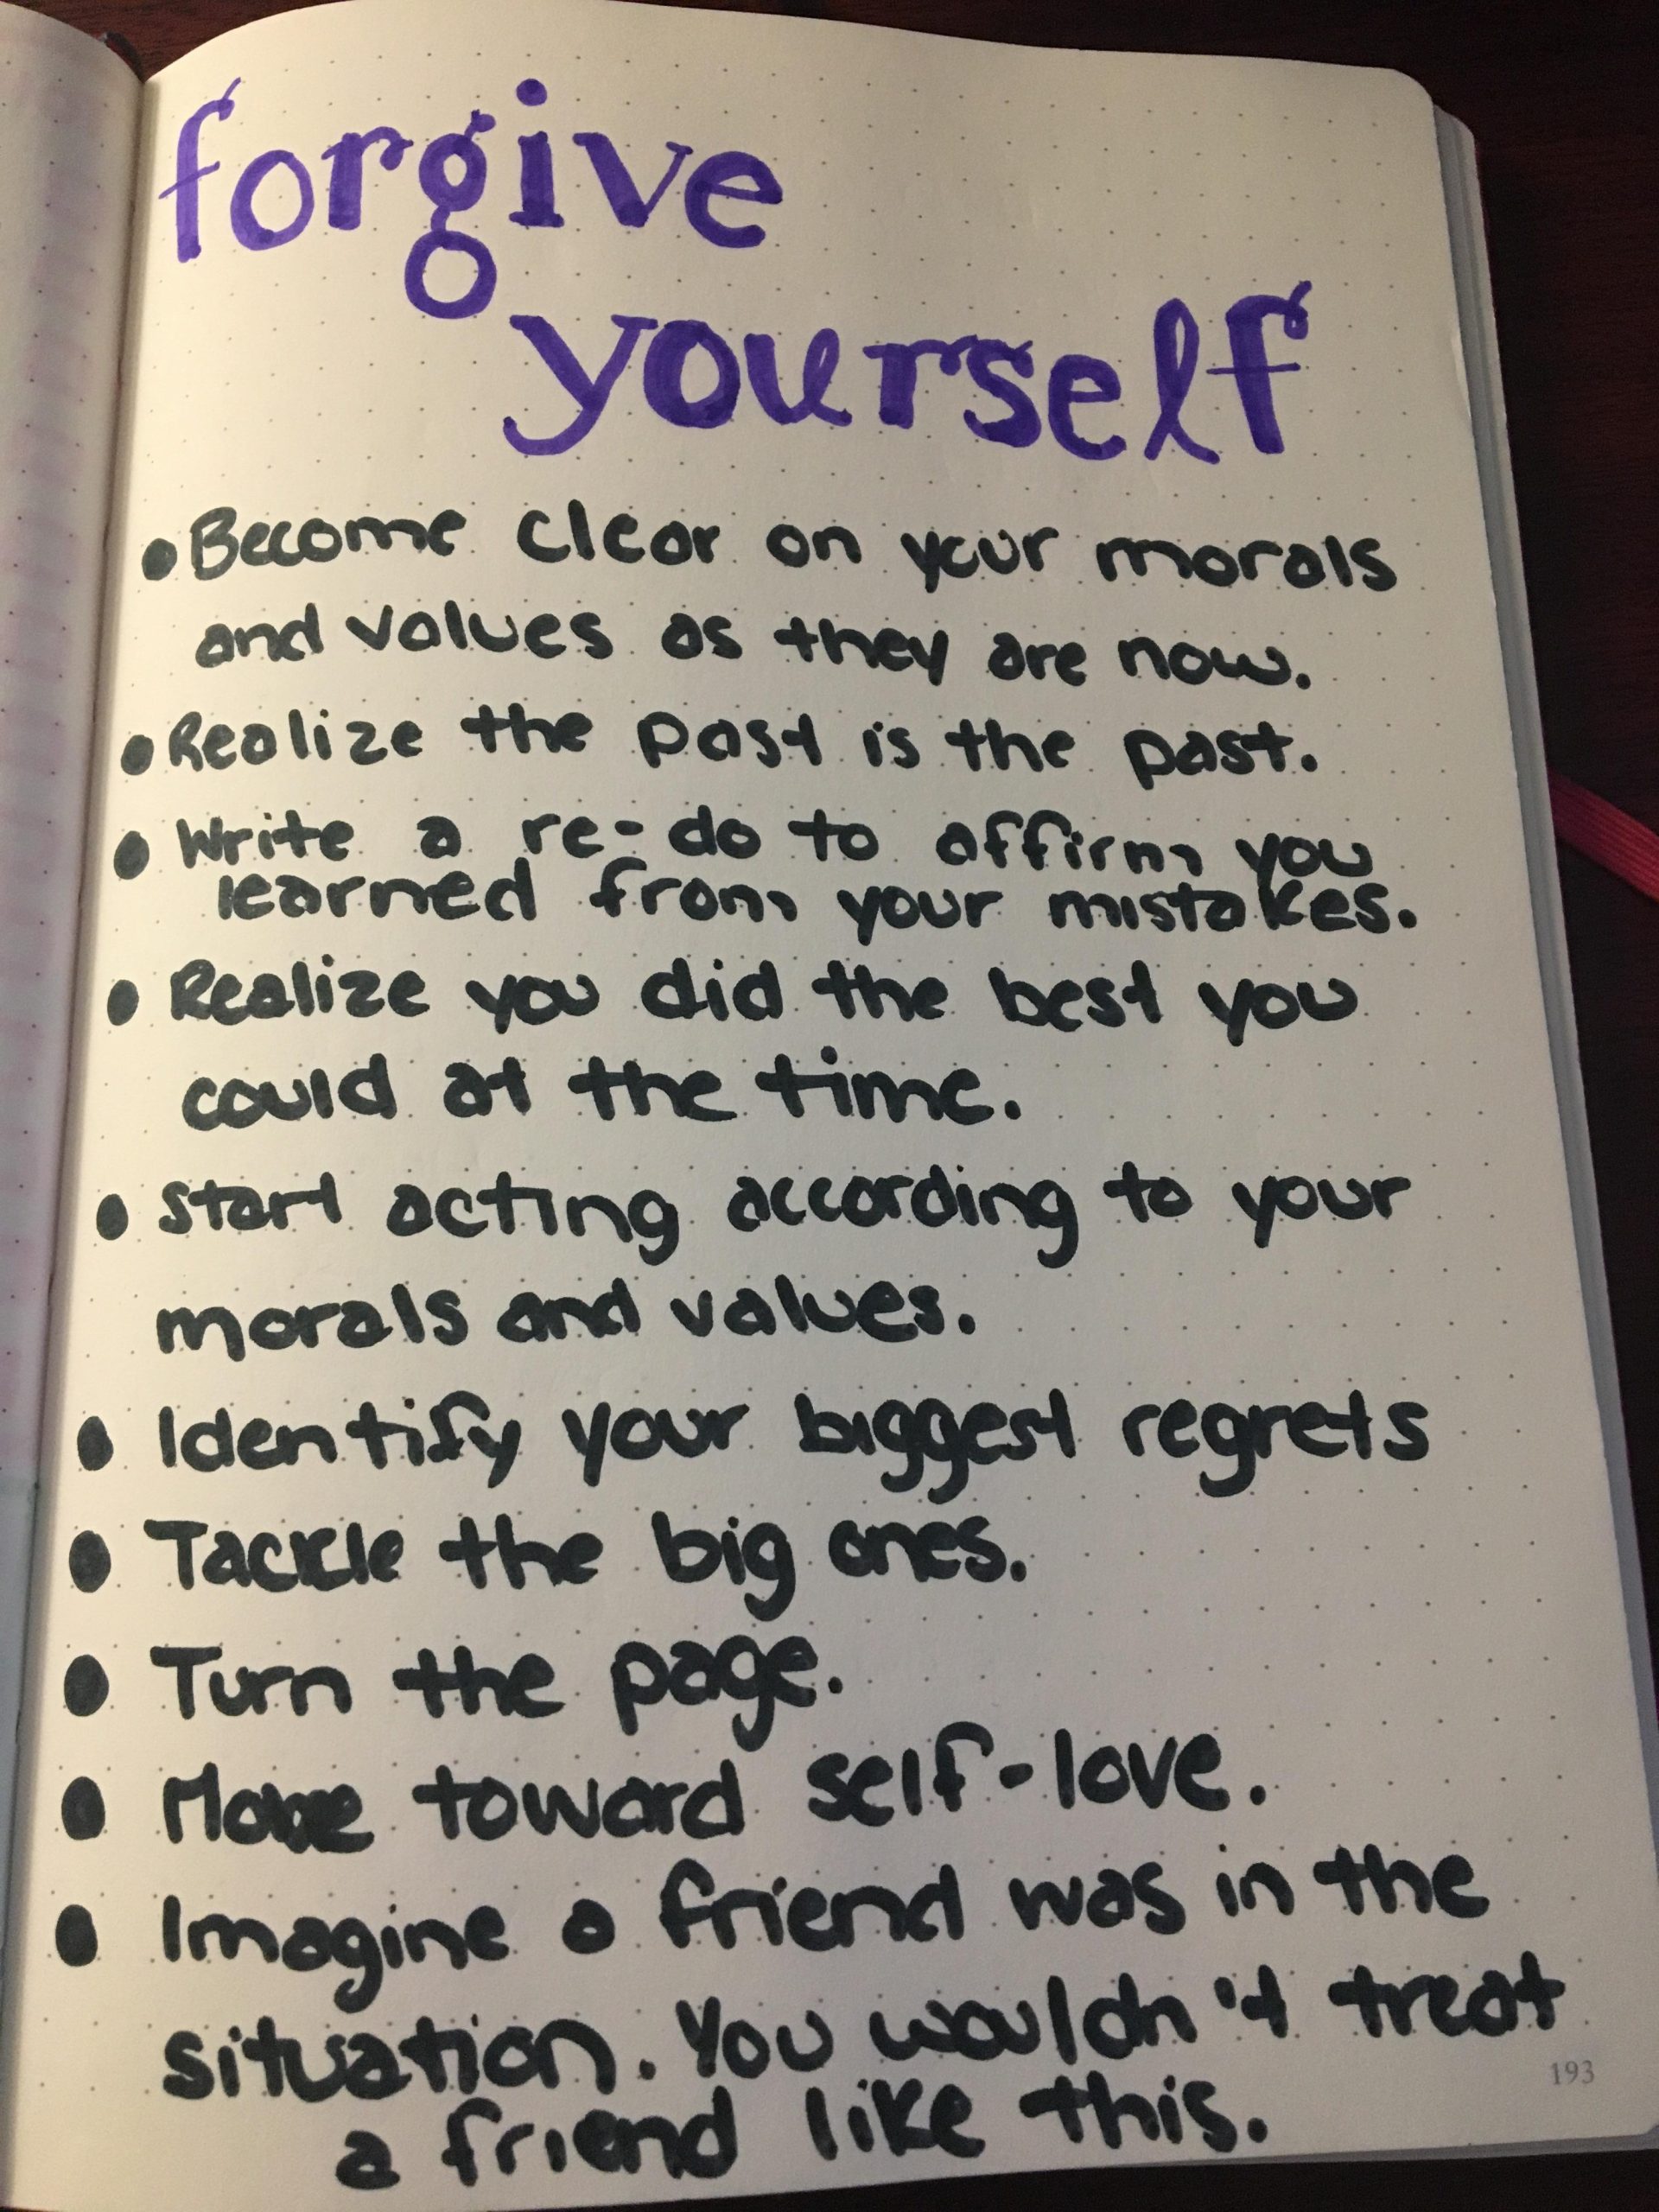 forgive
yourself
• Become clear on your morals
and values as they are now.
• Realize the past is the past.
• Write a re-do to affirm you
learned from your mistakes.
• Realize you did the best you
could at the time.
• Start acting according to your
morals and values.
• Identify your biggest regrets
• Tackle the big ones.
• Turn the page.
• Move toward self-love.
• Imagine a friend was in the
situation. You wouldn't treat
a friend like this.
193